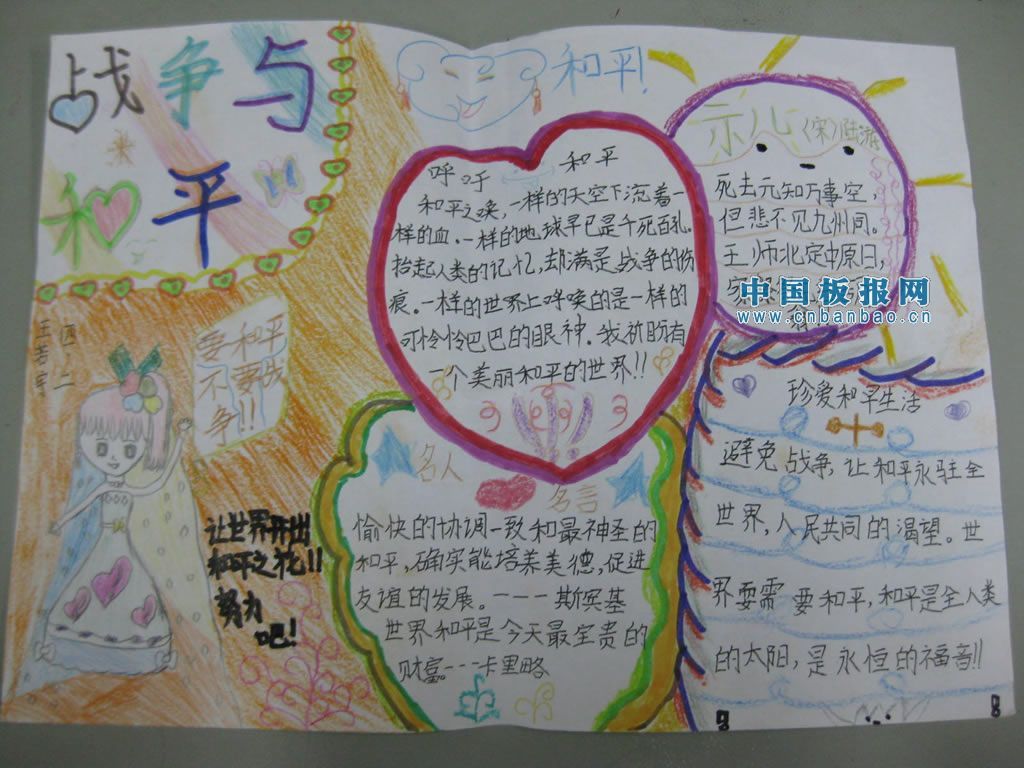 战争与
和平
和平!
呼吁 和平
和平之唤，一样的天空下流着一
样的血。一样的地球早已是千死百乱。
抬起人类的记忆，却满是战争的伤
痕。一样的世界上呼唤的是一样的
可怜怜巴巴的眼神。我祈盼有
一个美丽和平的世界!!
示儿（宋）陆游
死去元知万事空，
但悲不见九州同。
王师北定中原日，
中国板报网
www.cnbanbao.cn
四，二
要和平
不要战
争!!
让世界开出
和平之花!!
努力
吧!
名人
名言
愉快的协调一致和最神圣的
和平，确实能培养美德，促进
友谊的发展。———斯宾基
世界和平是今天最宝贵的
财富。---卡里略
珍爱和平生活
避免战争，让和平永驻全
世界，人民共同的渴望。世
界要需要和平，和平是全人类
的太阳，是永恒的福音!!